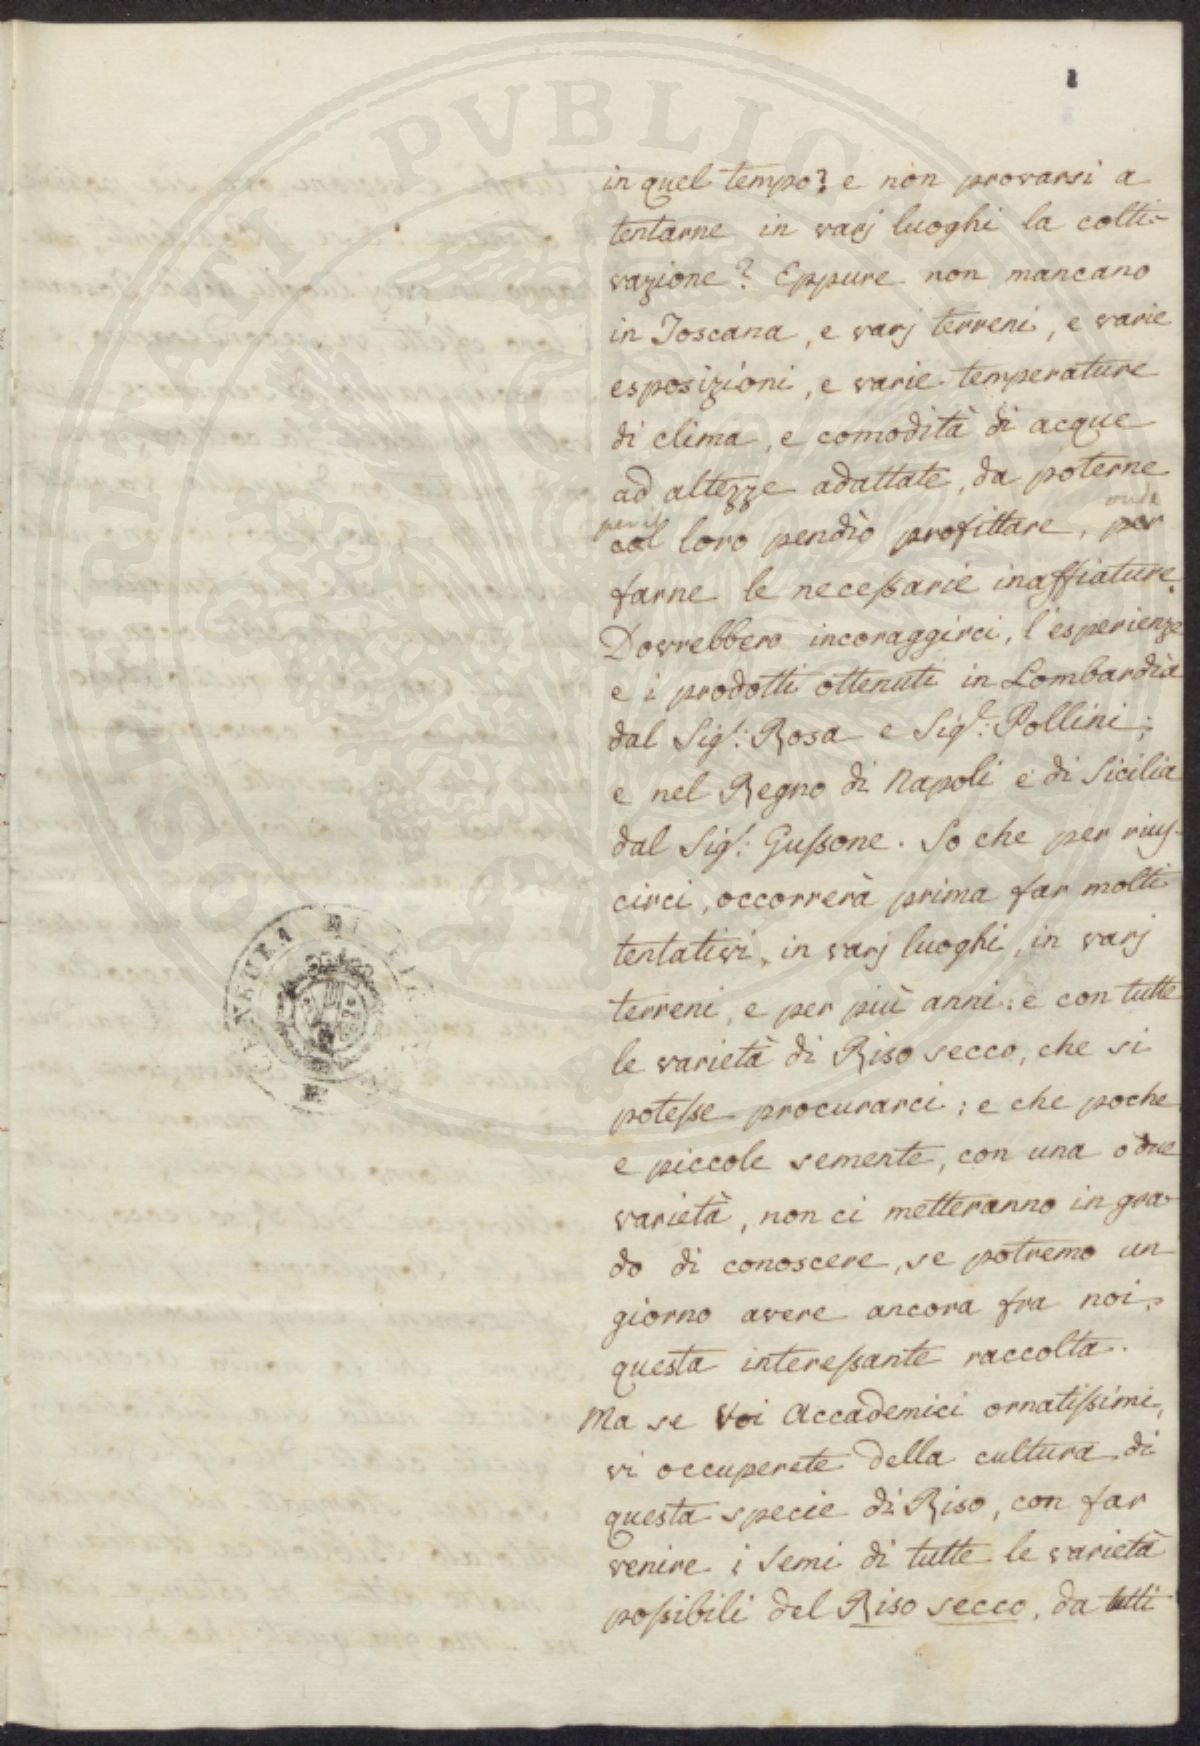 in quel tempo? e non provarsi a
tentarne in varj luoghi la colti-
vazione? Eppure non mancano
in Toscana, e varj terreni, e varie
esposizioni, e varie temperature
di clima, e comodità di acque
ad altezze adattate, da poterne
onde
col loro pendìo profittare, per
farne le necessarie inaffiature.
Dovrebbero incoraggirci, l'esperienze
e i prodotti ottenuti in Lombardìa
dal Sigr: Rosa e Sigr: Pollini;
e nel Regno di Napoli e di Sicilia
dal Sigr: Gussone. So che per rius-
circi, occorrerà prima far molti
tentativi, in varj luoghi, in varj
terreni, e per più anni: e con tutte
le varietà di Riso secco, che si
potesse procurarci: e che poche
e piccole semente, con una o due
varietà, non ci metteranno in gra-
do di conoscere, se potremo un
giorno avere ancora fra noi,
questa interessante raccolta.
Ma se Voi Accademici ornatissimi,
vi occuperete della cultura di
questa specie di Riso, con far
venire i Semi di tutte le varietà
possibili del Riso secco, da tutti